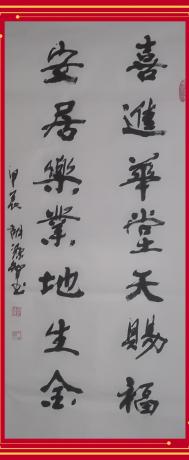 喜進華堂天賜福
安居樂業地生金
甲辰